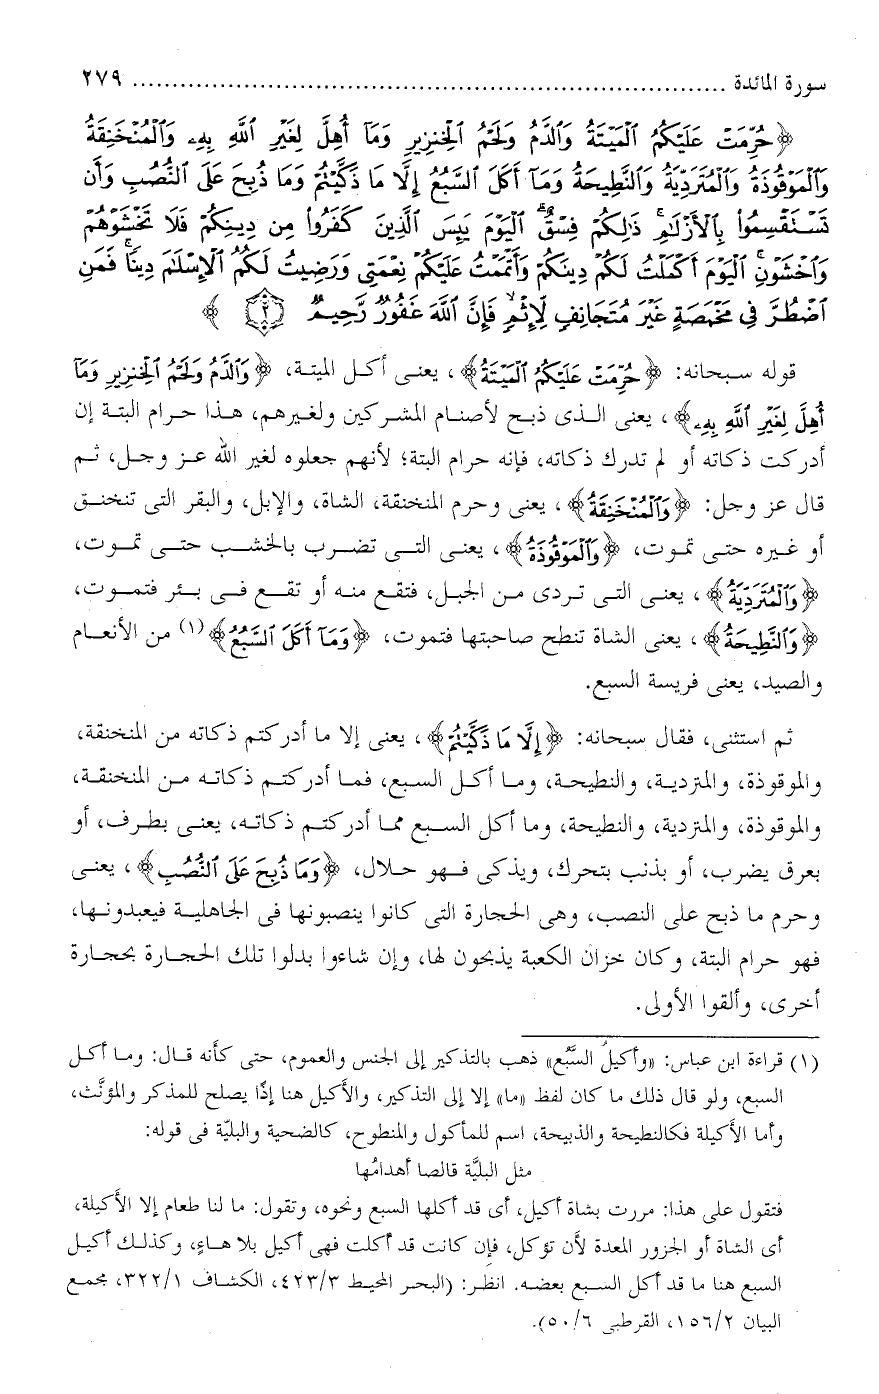 سورة المائدة ........................................................................... ٢٧٩
﴿حُرِّمَتْ عَلَيْكُمُ الْمَيْتَةُ وَالدَّمُ وَلَحْمُ الْخِنزِيرِ وَمَا أُهِلَّ لِغَيْرِ اللَّهِ بِهِ وَالْمُنْخَنِقَةُ
وَالْمَوْقُوذَةُ وَالْمُتَرَدِّيَةُ وَالنَّطِيحَةُ وَمَا أَكَلَ السَّبُعُ إِلَّا مَا ذَكَّيْتُمْ وَمَا ذُبِحَ عَلَى النُّصُبِ وَأَن
تَسْتَقْسِمُوا بِالْأَزْلَامِ ذَٰلِكُمْ فِسْقٌ الْيَوْمَ يَئِسَ الَّذِينَ كَفَرُوا مِن دِينِكُمْ فَلَا تَخْشَوْهُمْ
وَاخْشَوْنِ الْيَوْمَ أَكْمَلْتُ لَكُمْ دِينَكُمْ وَأَتْمَمْتُ عَلَيْكُمْ نِعْمَتِي وَرَضِيتُ لَكُمُ الْإِسْلَامَ دِينًا فَمَنِ
اضْطُرَّ فِي مَخْمَصَةٍ غَيْرَ مُتَجَانِفٍ لِّإِثْمٍ فَإِنَّ اللَّهَ غَفُورٌ رَّحِيمٌ ٣ ﴾
قوله سبحانه: ﴿حُرِّمَتْ عَلَيْكُمُ الْمَيْتَةُ﴾، يعنى أكل الميتة، ﴿وَالدَّمُ وَلَحْمُ الْخِنزِيرِ وَمَا
أُهِلَّ لِغَيْرِ اللَّهِ بِهِ﴾، يعنى الذى ذبح لأصنام المشركين ولغيرهم، هذا حرام البتة إن
أدركت ذكاته أو لم تدرك ذكاته، فإنه حرام البتة؛ لأنهم جعلوه لغير الله عز وجل، ثم
قال عز وجل: ﴿وَالْمُنْخَنِقَةُ﴾، يعنى وحرم المنخنقة، الشاة، والإبل، والبقر التى تنخنق
أو غيره حتى تموت، ﴿وَالْمَوْقُوذَةُ﴾، يعنى التى تضرب بالخشب حتى تموت،
﴿وَالْمُتَرَدِّيَةُ﴾، يعنى التى تردى من الجبل، فتقع منه أو تقع فى بئر فتموت،
﴿وَالنَّطِيحَةُ﴾، يعنى الشاة تنطح صاحبتها فتموت، ﴿وَمَا أَكَلَ السَّبُعُ﴾(١) من الأنعام
والصيد، يعنى فريسة السبع.
ثم استثنى، فقال سبحانه: ﴿إِلَّا مَا ذَكَّيْتُمْ﴾، يعنى إلا ما أدركتم ذكاته من المنخنقة،
والموقوذة، والمتردية، والنطيحة، وما أكل السبع، فما أدركتم ذكاته من المنخنقة،
والموقوذة، والمتردية، والنطيحة، وما أكل السبع مما أدركتم ذكاته، يعنى بطرف، أو
بعرق يضرب، أو بذنب بتحرك، ويذكى فهو حلال، ﴿وَمَا ذُبِحَ عَلَى النُّصُبِ﴾، يعنى
وحرم ما ذبح على النصب، وهى الحجارة التى كانوا ينصبونها فى الجاهلية فيعبدونها،
فهو حرام البتة، وكان خزان الكعبة يذبحون لها، وإن شاءوا بدلوا تلك الحجارة بحجارة
أخرى، وألقوا الأولى.
(١) قراءة ابن عباس: «وأكيلُ السَّبُع» ذهب بالتذكير إلى الجنس والعموم، حتى كأنه قال: وما أكل
السبع، ولو قال ذلك ما كان لفظ «ما» إلا إلى التذكير، والأكيل هنا إذًا يصلح للمذكر والمؤنَّث،
وأما الأكيلة فكالنطيحة والذبيحة، اسم للمأكول والمنطوح، كالضحية والبليّة فى قوله:
مثل البليَّة قالصا أهدامُها
فتقول على هذا: مررت بشاة أكيل، أى قد أكلها السبع ونحوه، وتقول: ما لنا طعام إلا الأكيلة،
أى الشاة أو الجزور المعدة لأن تؤكل، فإن كانت قد أكلت فهى أكيل بلا هاءٍ، وكذلك أكيل
السبع هنا ما قد أكل السبع بعضه. انظر: (البحر المحيط ٤٢٣/٣، الكشاف ٣٢٢/١، مجمع
البيان ١٥٦/٢، القرطبى ٥٠/٦).